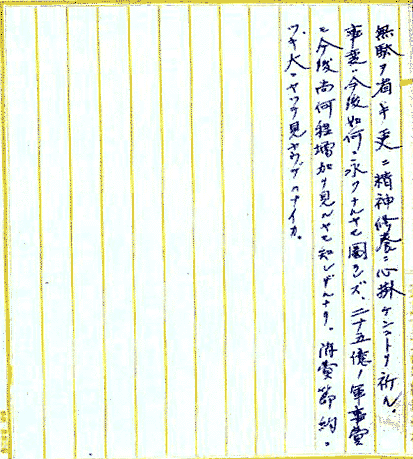 無駄ヲ省キ更ニ精神修養ニ心掛ケンコトヲ祈ル。
事変ハ今後如何ニ永クナルヤモ図ラレズ、二十五億ノ軍事費
モ今後尚何程増加ヲ見ルヤモ知レザルナリ。消費節約。
ツキ大ニヤツテ見ヤウデハナイカ。